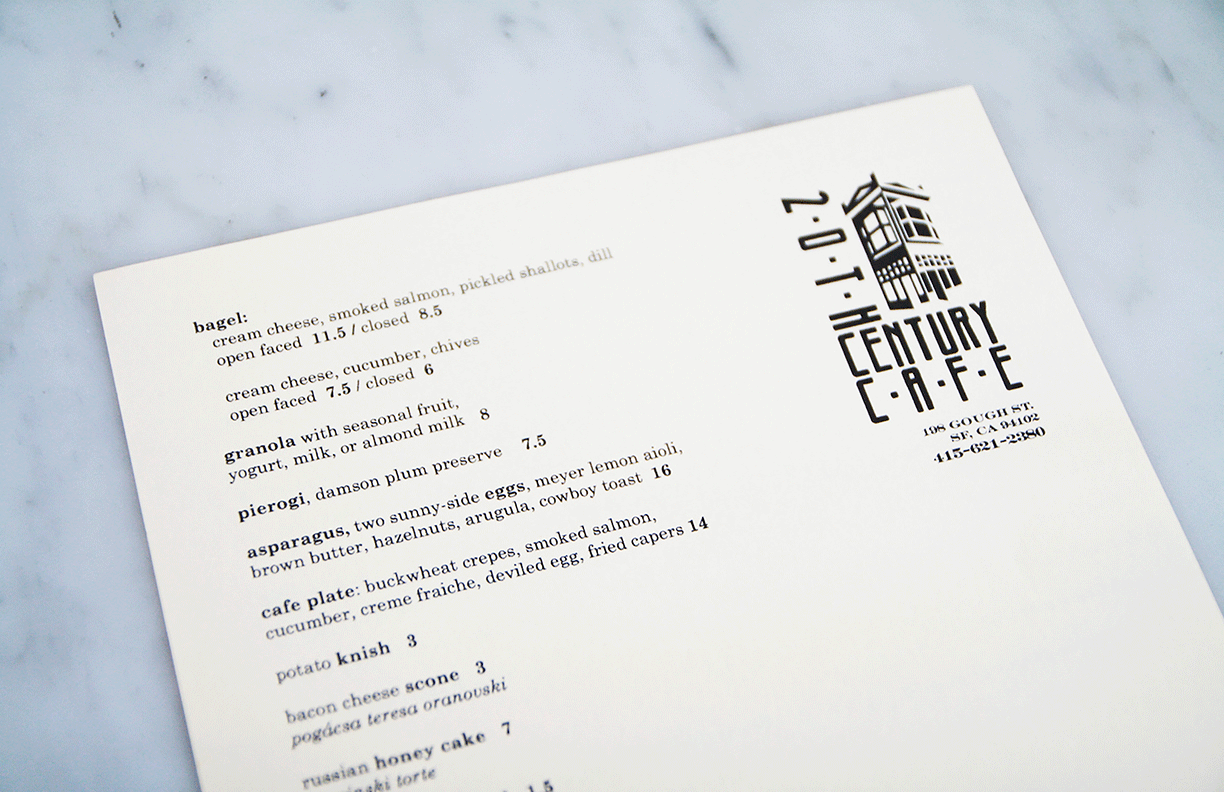 bagel:
cream cheese, smoked salmon, pickled shallots, dill
open faced 11.5 / closed 8.5
cream cheese, cucumber, chives
open faced 7.5 / closed 6
granola with seasonal fruit,
yogurt, milk, or almond milk 8
pierogi, damson plum preserve 7.5
asparagus, two sunny-side eggs, meyer lemon aioli,
brown butter, hazelnuts, arugula, cowboy toast 16
cafe plate: buckwheat crepes, smoked salmon,
cucumber, creme fraiche, deviled egg, fried capers 14
potato knish 3
bacon cheese scone 3
pogácsa teresa oranovski
russian honey cake 7
torte
1.5
2·0·T·H
CENTURY
C·A·F·E
198 GOUGH ST.
SF, CA 94102
415-621-2380